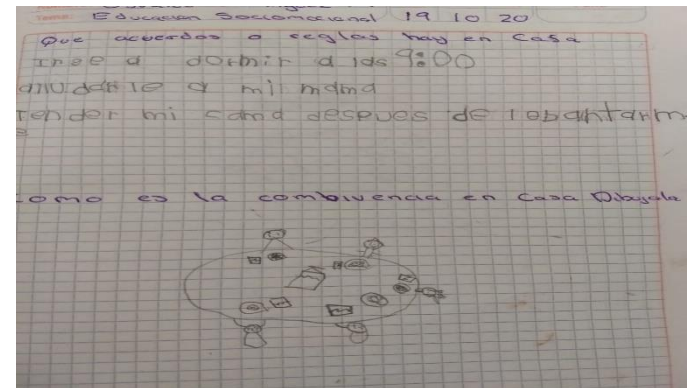 Educacion Sociomocional 19 10 20
Que acuerdos o reglas hay en casa
a dormir a las 9:00
alludarle a mi mama
Tender mi cama despues de lebantarm
e
como es la combivencia en casa Dibujala